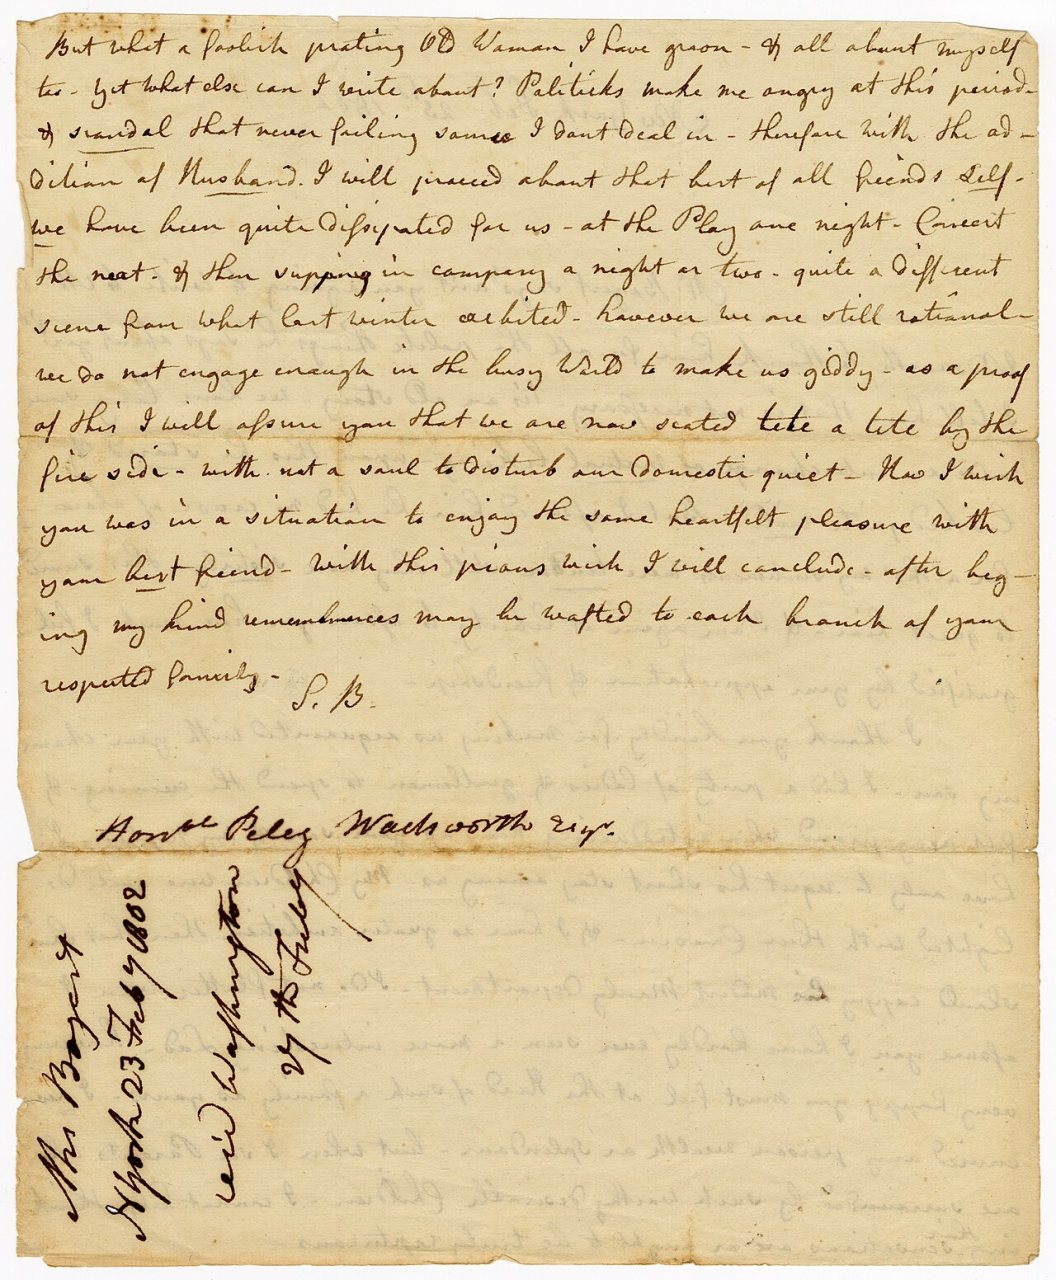 But what a foolish prating Old Woman I have grown - & all about myself
too - yet what else can I write about? Politicks make me angry at this period -
& scandal that never failing source I dont deal in - therefore with the ad-
dition of Husband. I will proceed about that best of all friends Self -
we have been quite dissipated for us - at the Play one night - Concert
the next - & then supping in company a night or two - quite a different
scene from what last winter exhibited - however we are still rational -
we do not engage enough in the busy World to make us giddy - as a proof
of this I will assure you that we are now seated tete a tete by the
fire side - with not a soul to disturb our domestic quiet - How I wish
you was in a situation to enjoy the same heartfelt pleasure with
your best friend - with this pious wish I will conclude - after beg-
ing my kind remembrances may be wafted to each branch of your
respected family -
S. B.
Honble Peleg Wadsworth Esqr.
Mrs Bogert
NYork 23 Feby 1802
recd Washington
27th Feby